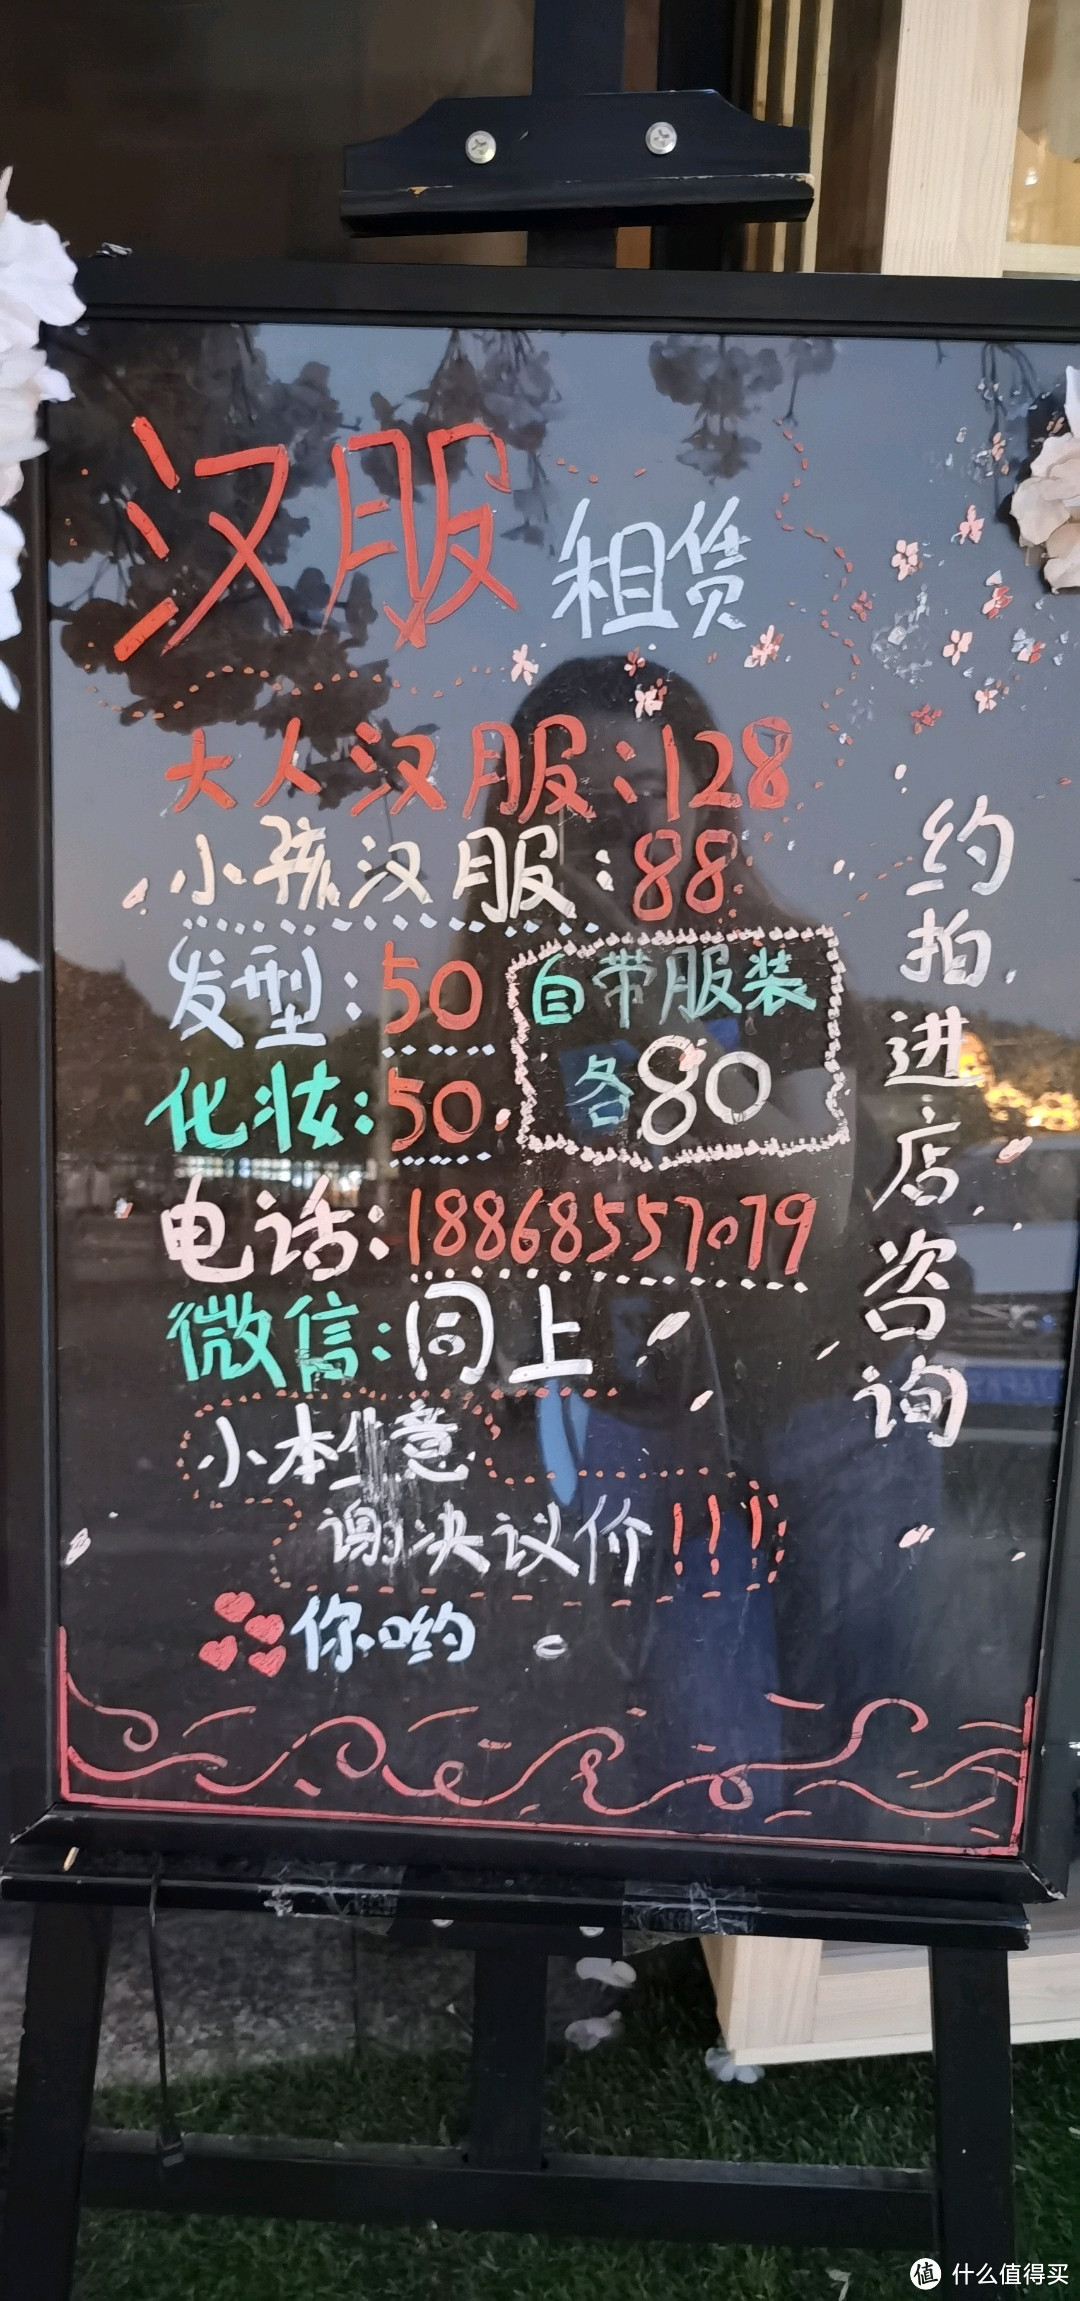 汉服租赁
大人汉服:128
小孩汉服:88
发型:50
化妆:50
自带服装
各80
电话:18868557079
微信:同上
小本生意
谢决议价!!!
你哟
约拍进店咨询
值 什么值得买